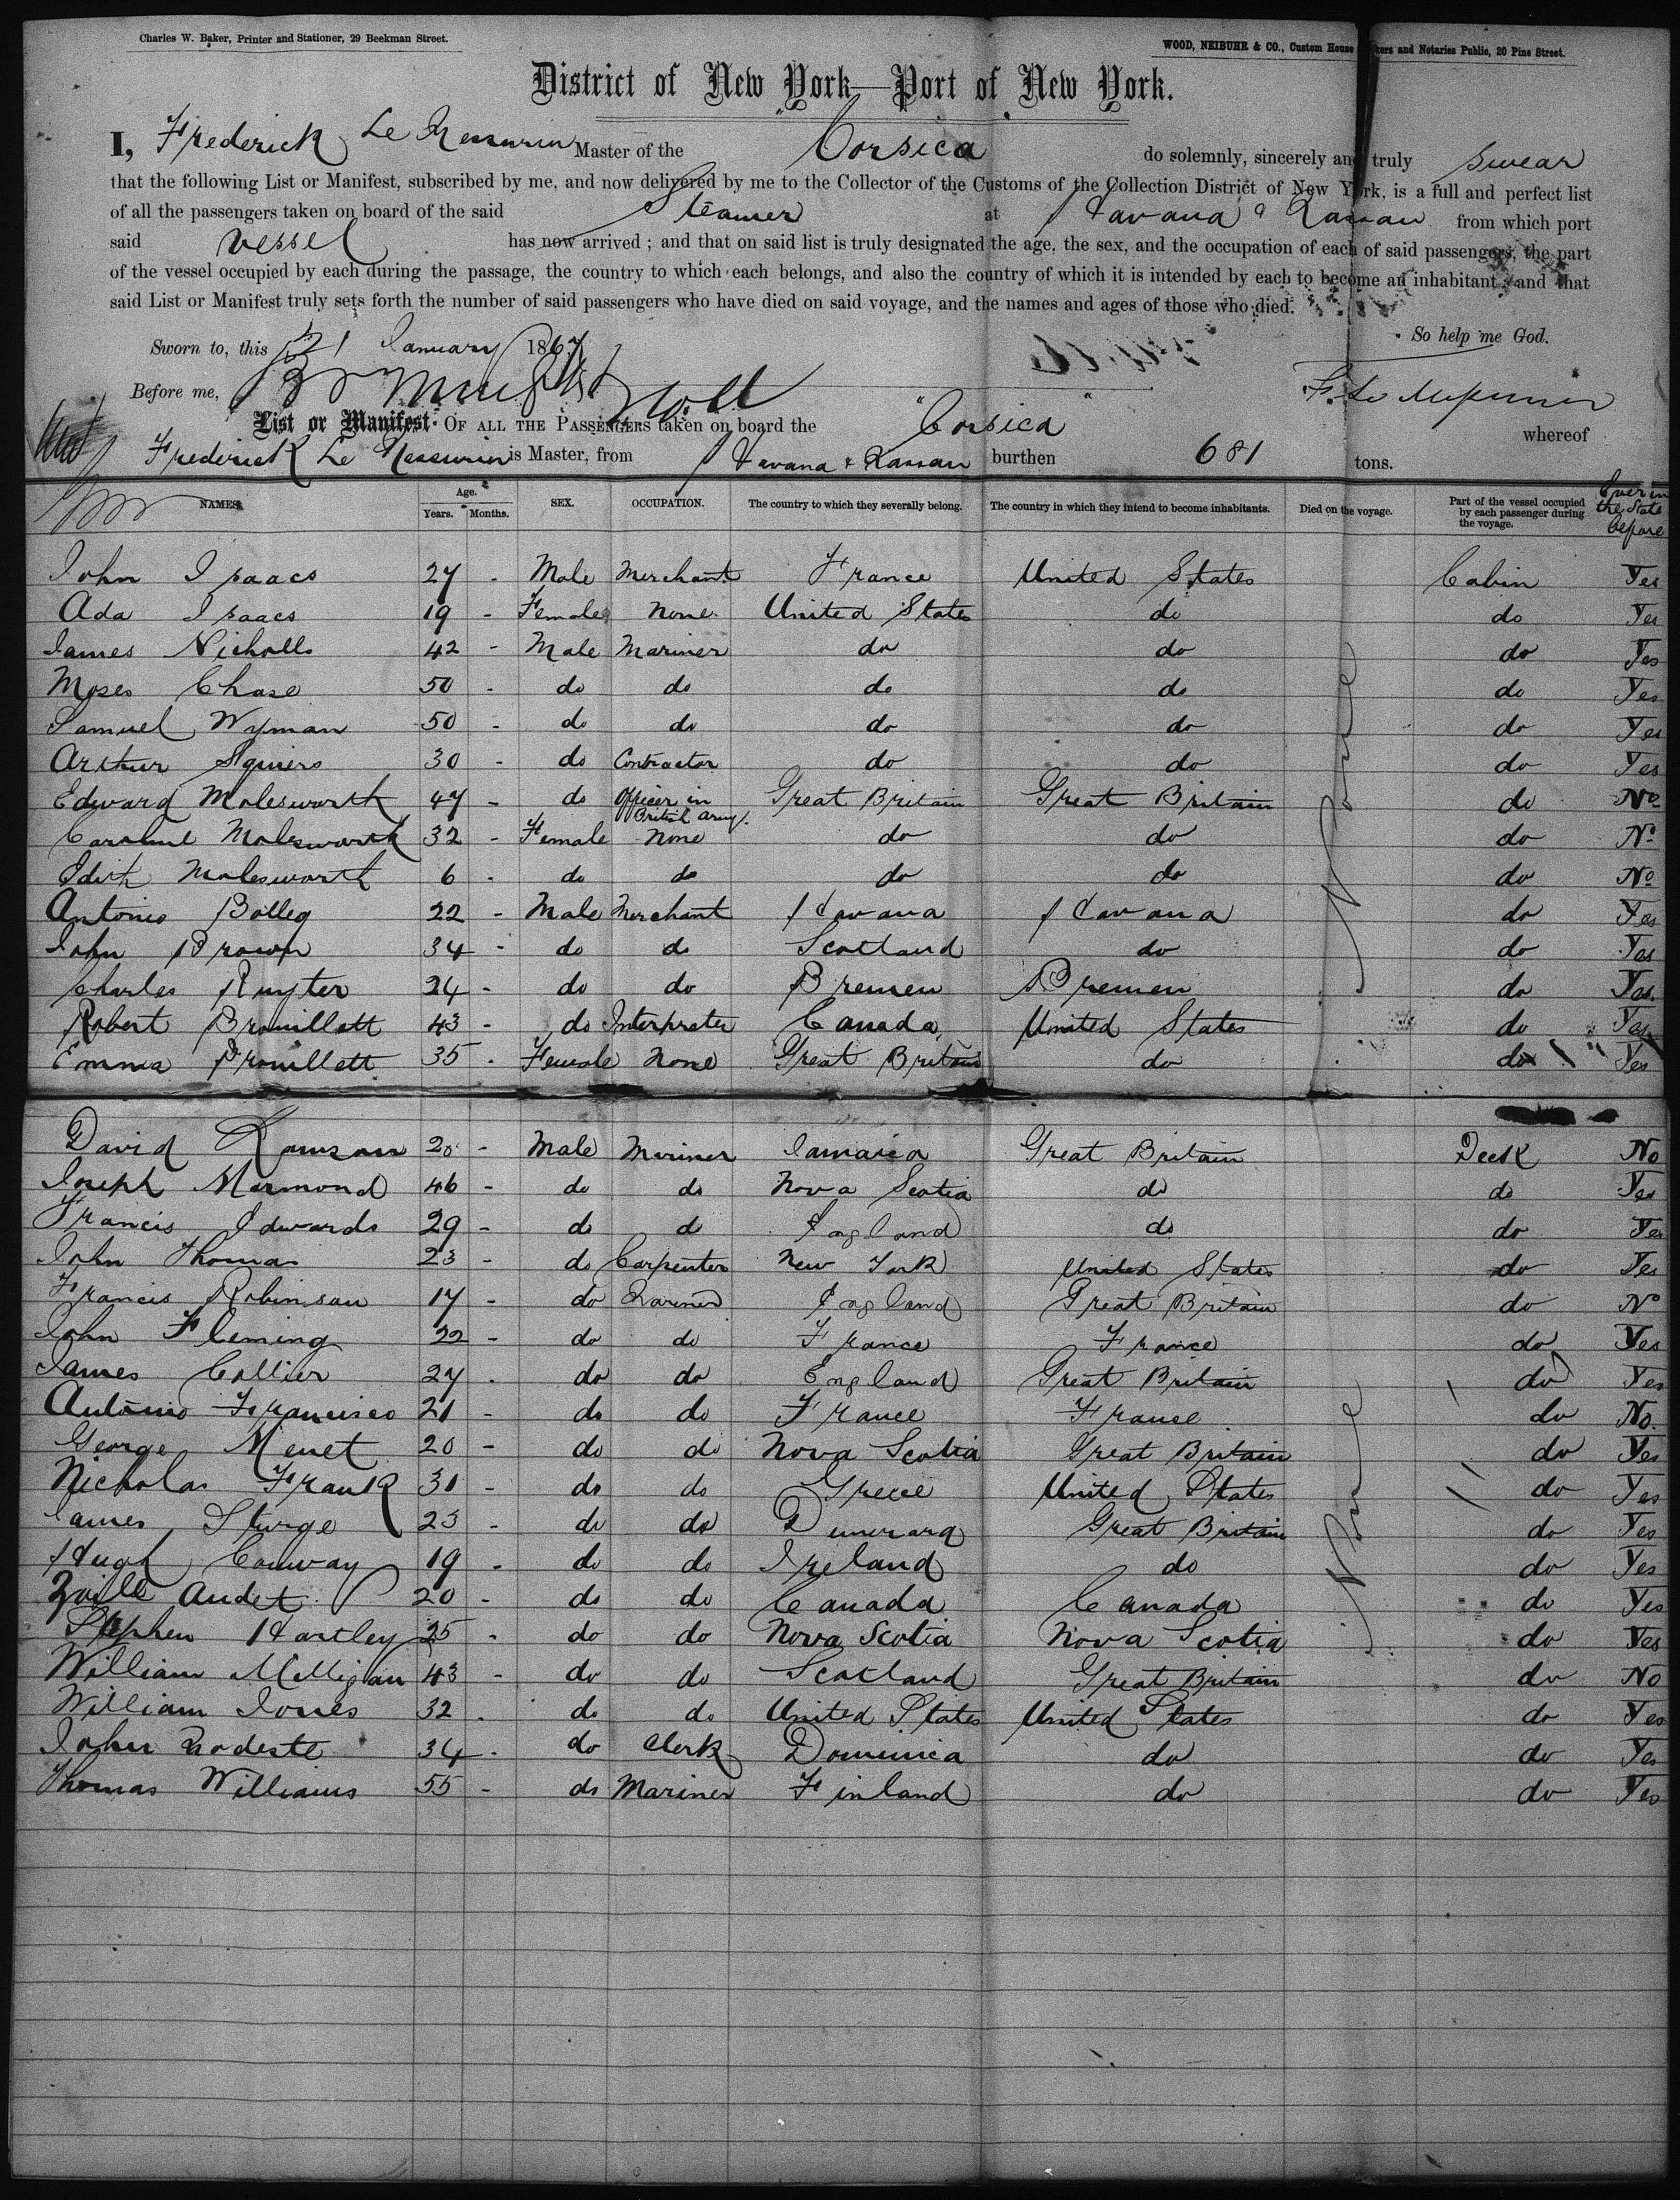 Charles W. Baker, Printer and Stationer, 29 Beekman Street.
WOOD, NEIBUHR & CO., Custom House and Notaries Public, 20 Pine Street.
District of New York—Port of New York.
I, Frederick Le Messurier Master of the Corsica do solemnly, sincerely and truly swear
that the following List or Manifest, subscribed by me, and now delivered by me to the Collector of the Customs of the Collection District of New York, is a full and perfect list
of all the passengers taken on board of the said Steamer at Havana & Nassau from which port
said vessel has now arrived ; and that on said list is truly designated the age, the sex, and the occupation of each of said passengers, the part
of the vessel occupied by each during the passage, the country to which each belongs, and also the country of which it is intended by each to become an inhabitant ; and that
said List or Manifest truly sets forth the number of said passengers who have died on said voyage, and the names and ages of those who died.
So help me God.
Sworn to, this 21 January 1867
Before me,
F. Le Messurier
List or Manifest OF ALL THE PASSENGERS taken on board the "Corsica" whereof
Frederick Le Messurier is Master, from Havana & Nassau burthen 681 tons.
NAMES. Age. Years. Months. SEX. OCCUPATION. The country to which they severally belong. The country in which they intend to become inhabitants. Died on the voyage. Part of the vessel occupied by each passenger during the voyage. Ever in the State before
John Isaacs 27 - Male Merchant France United States Cabin Yes
Ada Isaacs 19 - Female None United States do do Yes
James Nicholls 42 - Male Mariner do do do Yes
Moses Chase 50 - do do do do do Yes
Samuel Wyman 50 - do do do do do Yes
Arthur Squiers 30 - do Contractor do do do Yes
Edward Molesworth 47 - do Officer in British army. Great Britain Great Britain do No
Caroline Molesworth 32 - Female None do do do No
Edith Molesworth 6 - do do do do do No
Antonio 22 - Male Merchant Havana Havana do Yes
John Brown 34 - do do Scotland do do Yes
Charles Ruyter 24 - do do Bremen Bremen do Yes
Robert Brouillett 43 - do Interpreter Canada United States do Yes
Emma Brouillett 35 - Female None Great Britain do do Yes
None
David Ramson 20 - Male Mariner Jamaica Great Britain Deck No
Joseph Marmond 46 - do do Nova Scotia do do Yes
Francis Edwards 29 - do do England do do Yes
John Thomas 23 - do Carpenter New York United States do Yes
Francis Robinson 17 - do Mariner England Great Britain do No
John Fleming 22 - do do France France do Yes
James Collier 27 - do do England Great Britain do Yes
Antonio Francisco 21 - do do France France do No
George Menet 20 - do do Nova Scotia Great Britain do Yes
Nicholas Frank 31 - do do Greece United States do Yes
James Sturge 23 - do do Demerara Great Britain do Yes
Hugh Conway 19 - do do Ireland do do Yes
Audet 20 - do do Canada Canada do Yes
Stephen Hartley 25 - do do Nova Scotia Nova Scotia do Yes
William Milligan 43 - do do Scotland Great Britain do No
William Jones 32 - do do United States United States do Yes
John Modeste 34 - do Clerk Dominica do do Yes
Thomas Williams 55 - do Mariner Finland do do Yes
None